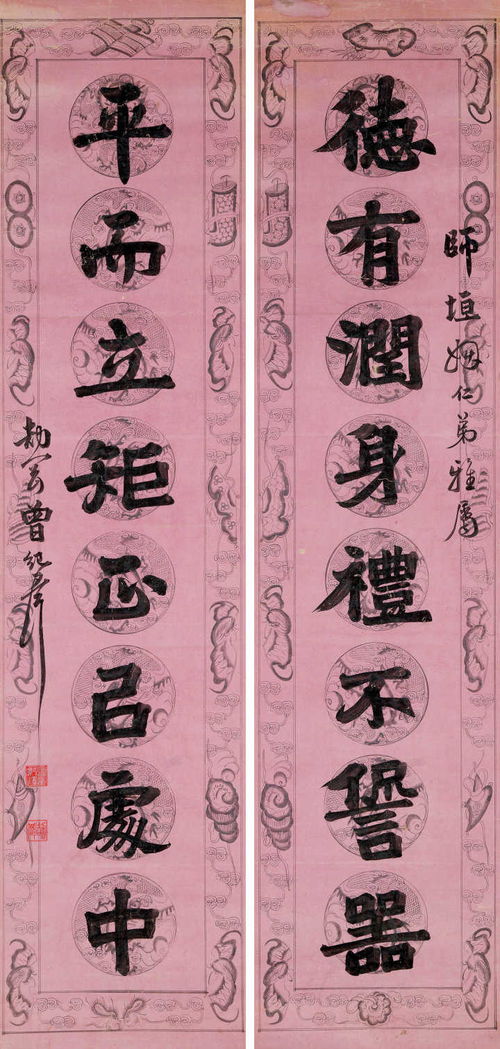 師垣姻仁弟雅屬
德有潤身禮不諐器
平而立矩正己處中
劼剛曾紀澤